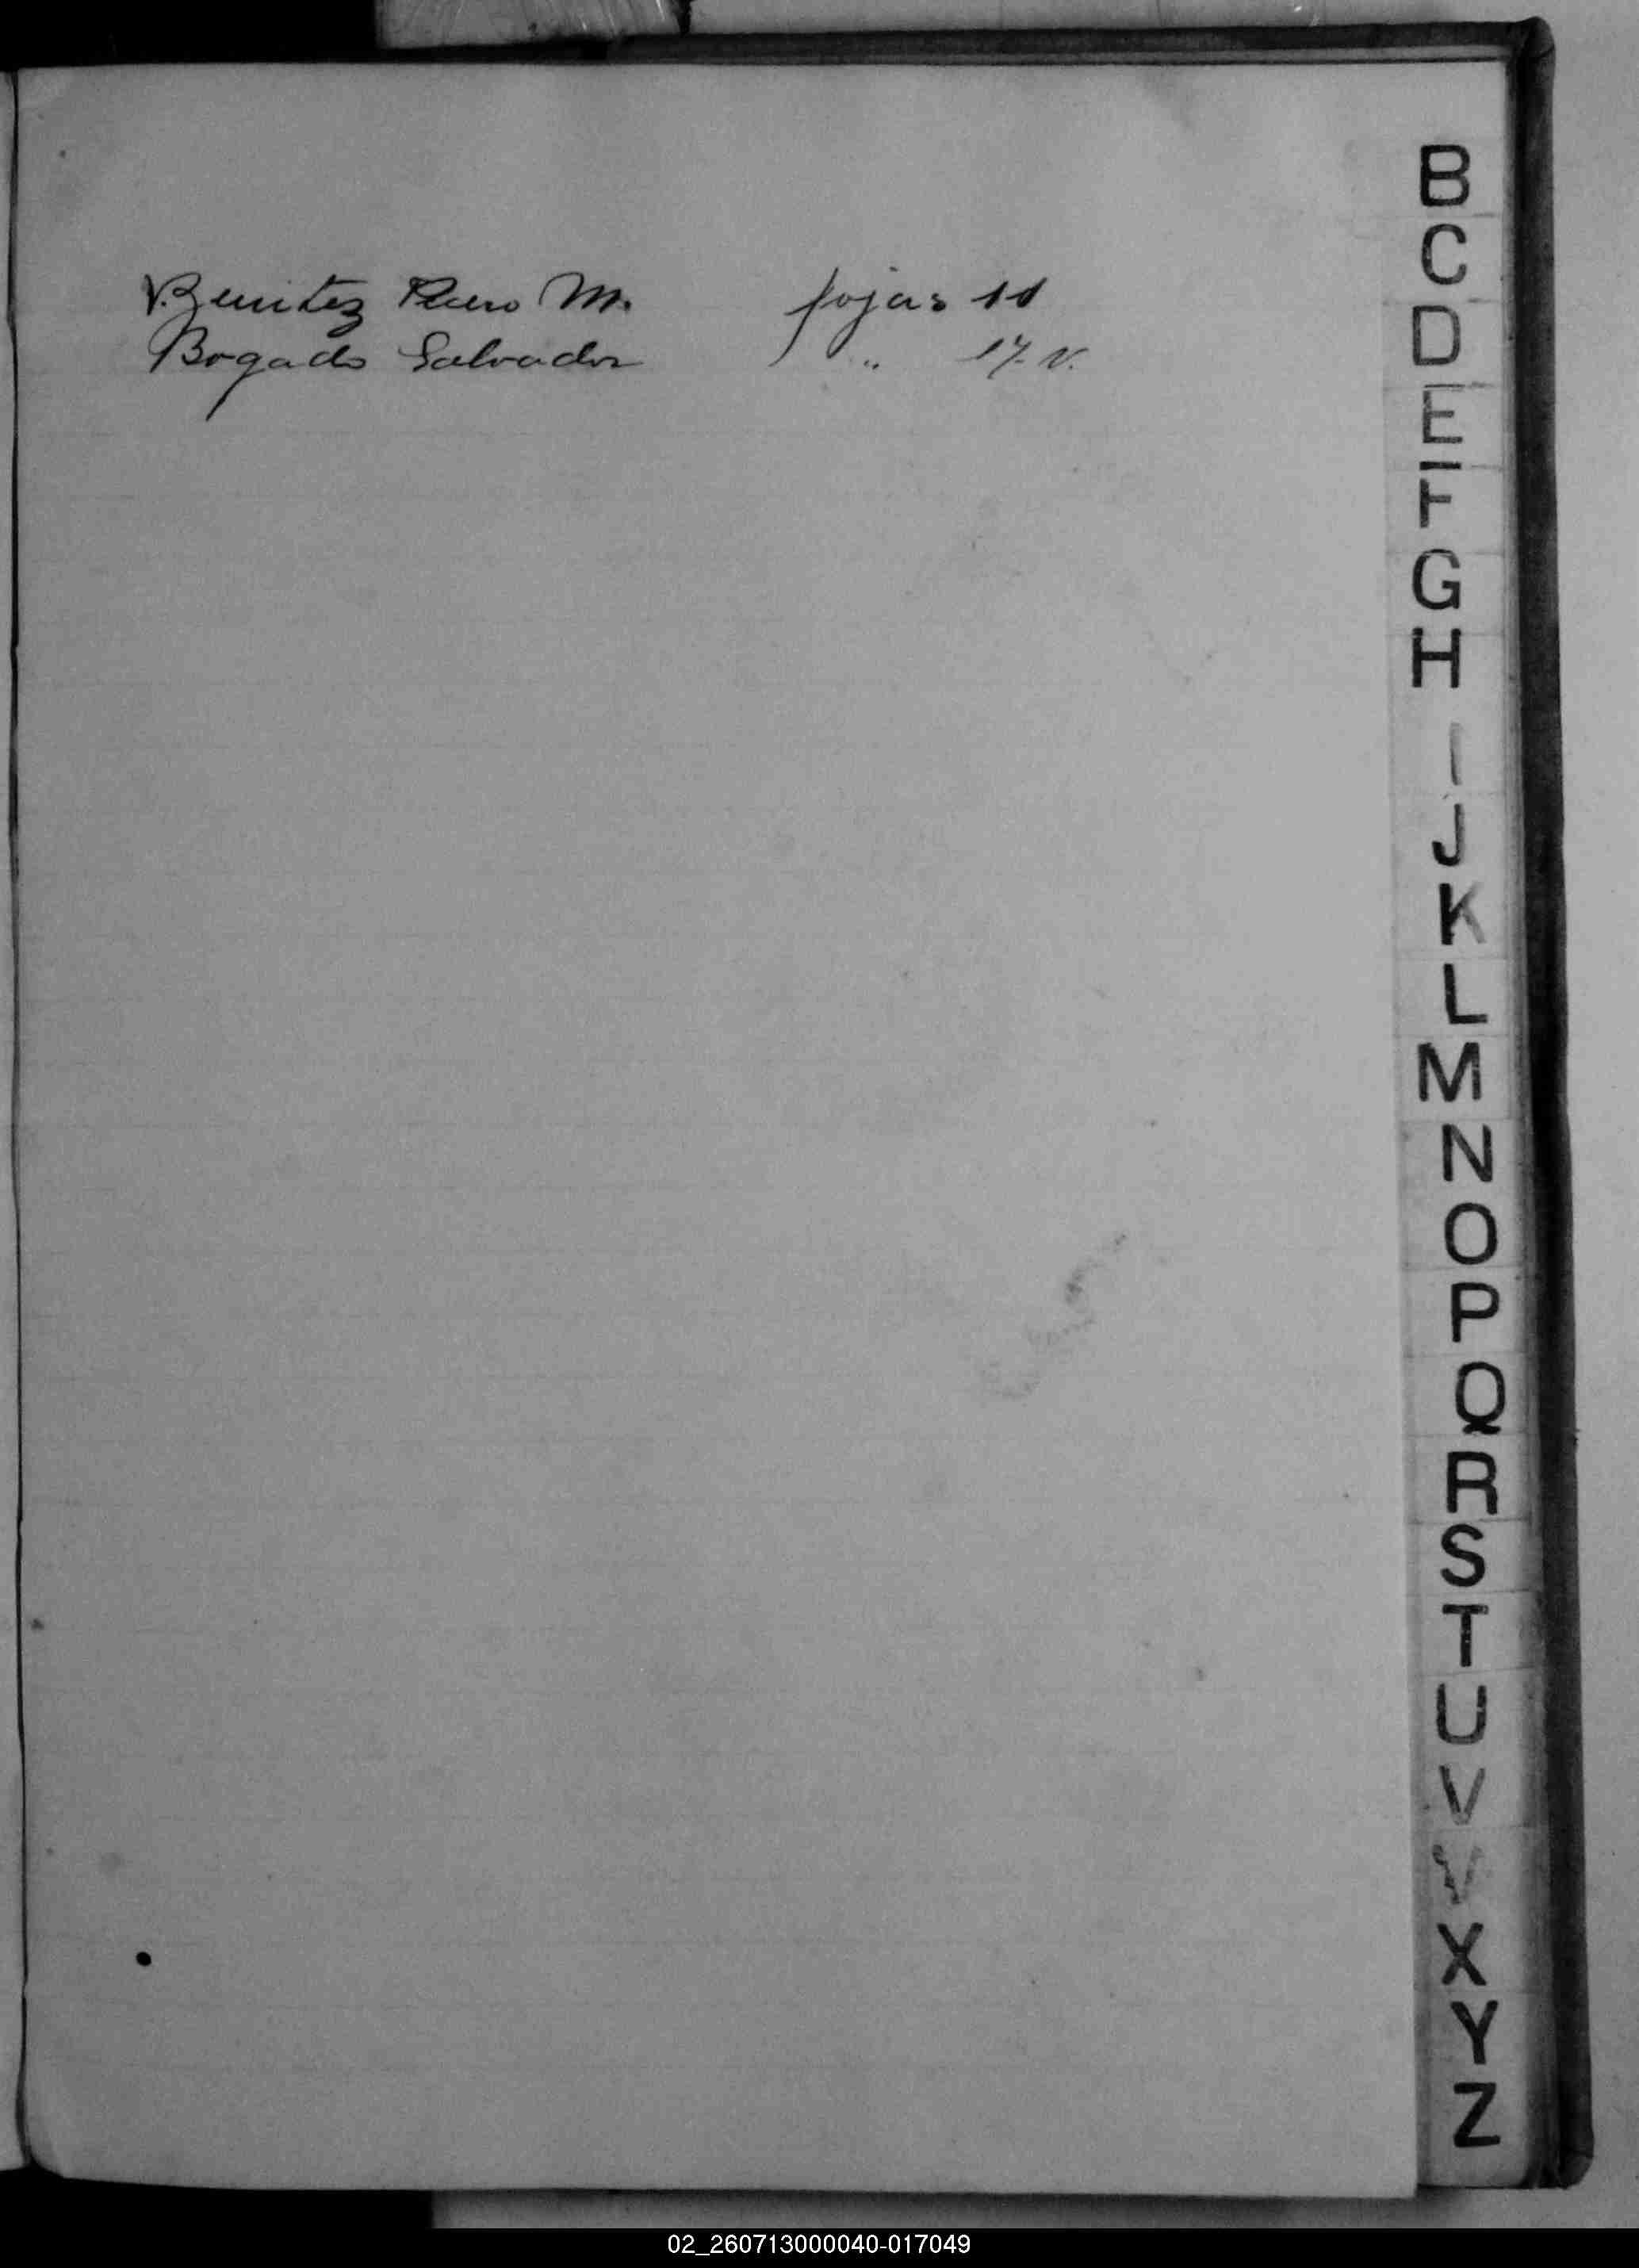 Benitez M. fojas 11
Bogado Salvador " 17 v.
B
C
D
E
F
G
H
I
J
K
L
M
N
O
P
Q
R
S
T
U
V
X
Y
Z
02_260713000040-017049